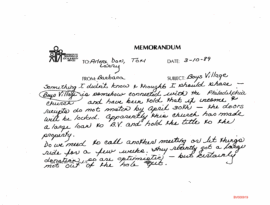 MEMORANDUM
TO: Arlene, Dave, Toni
DATE: 3-10-89
FROM: Barbara
SUBJECT: Boys Village
Something I didn't know & thought I should share —
Boys Village is somehow connected with the Philadelphia
church and have been told that if income &
receipts do not match by April 30th — the doors
will be locked. Apparently this church has made
a large loan to B.V. and hold the title to the
property.
Do we need to call another meeting or let things
ride for a few weeks. They recently got a large
donation, so are optimistic — but certainly
not out of the hole yet.